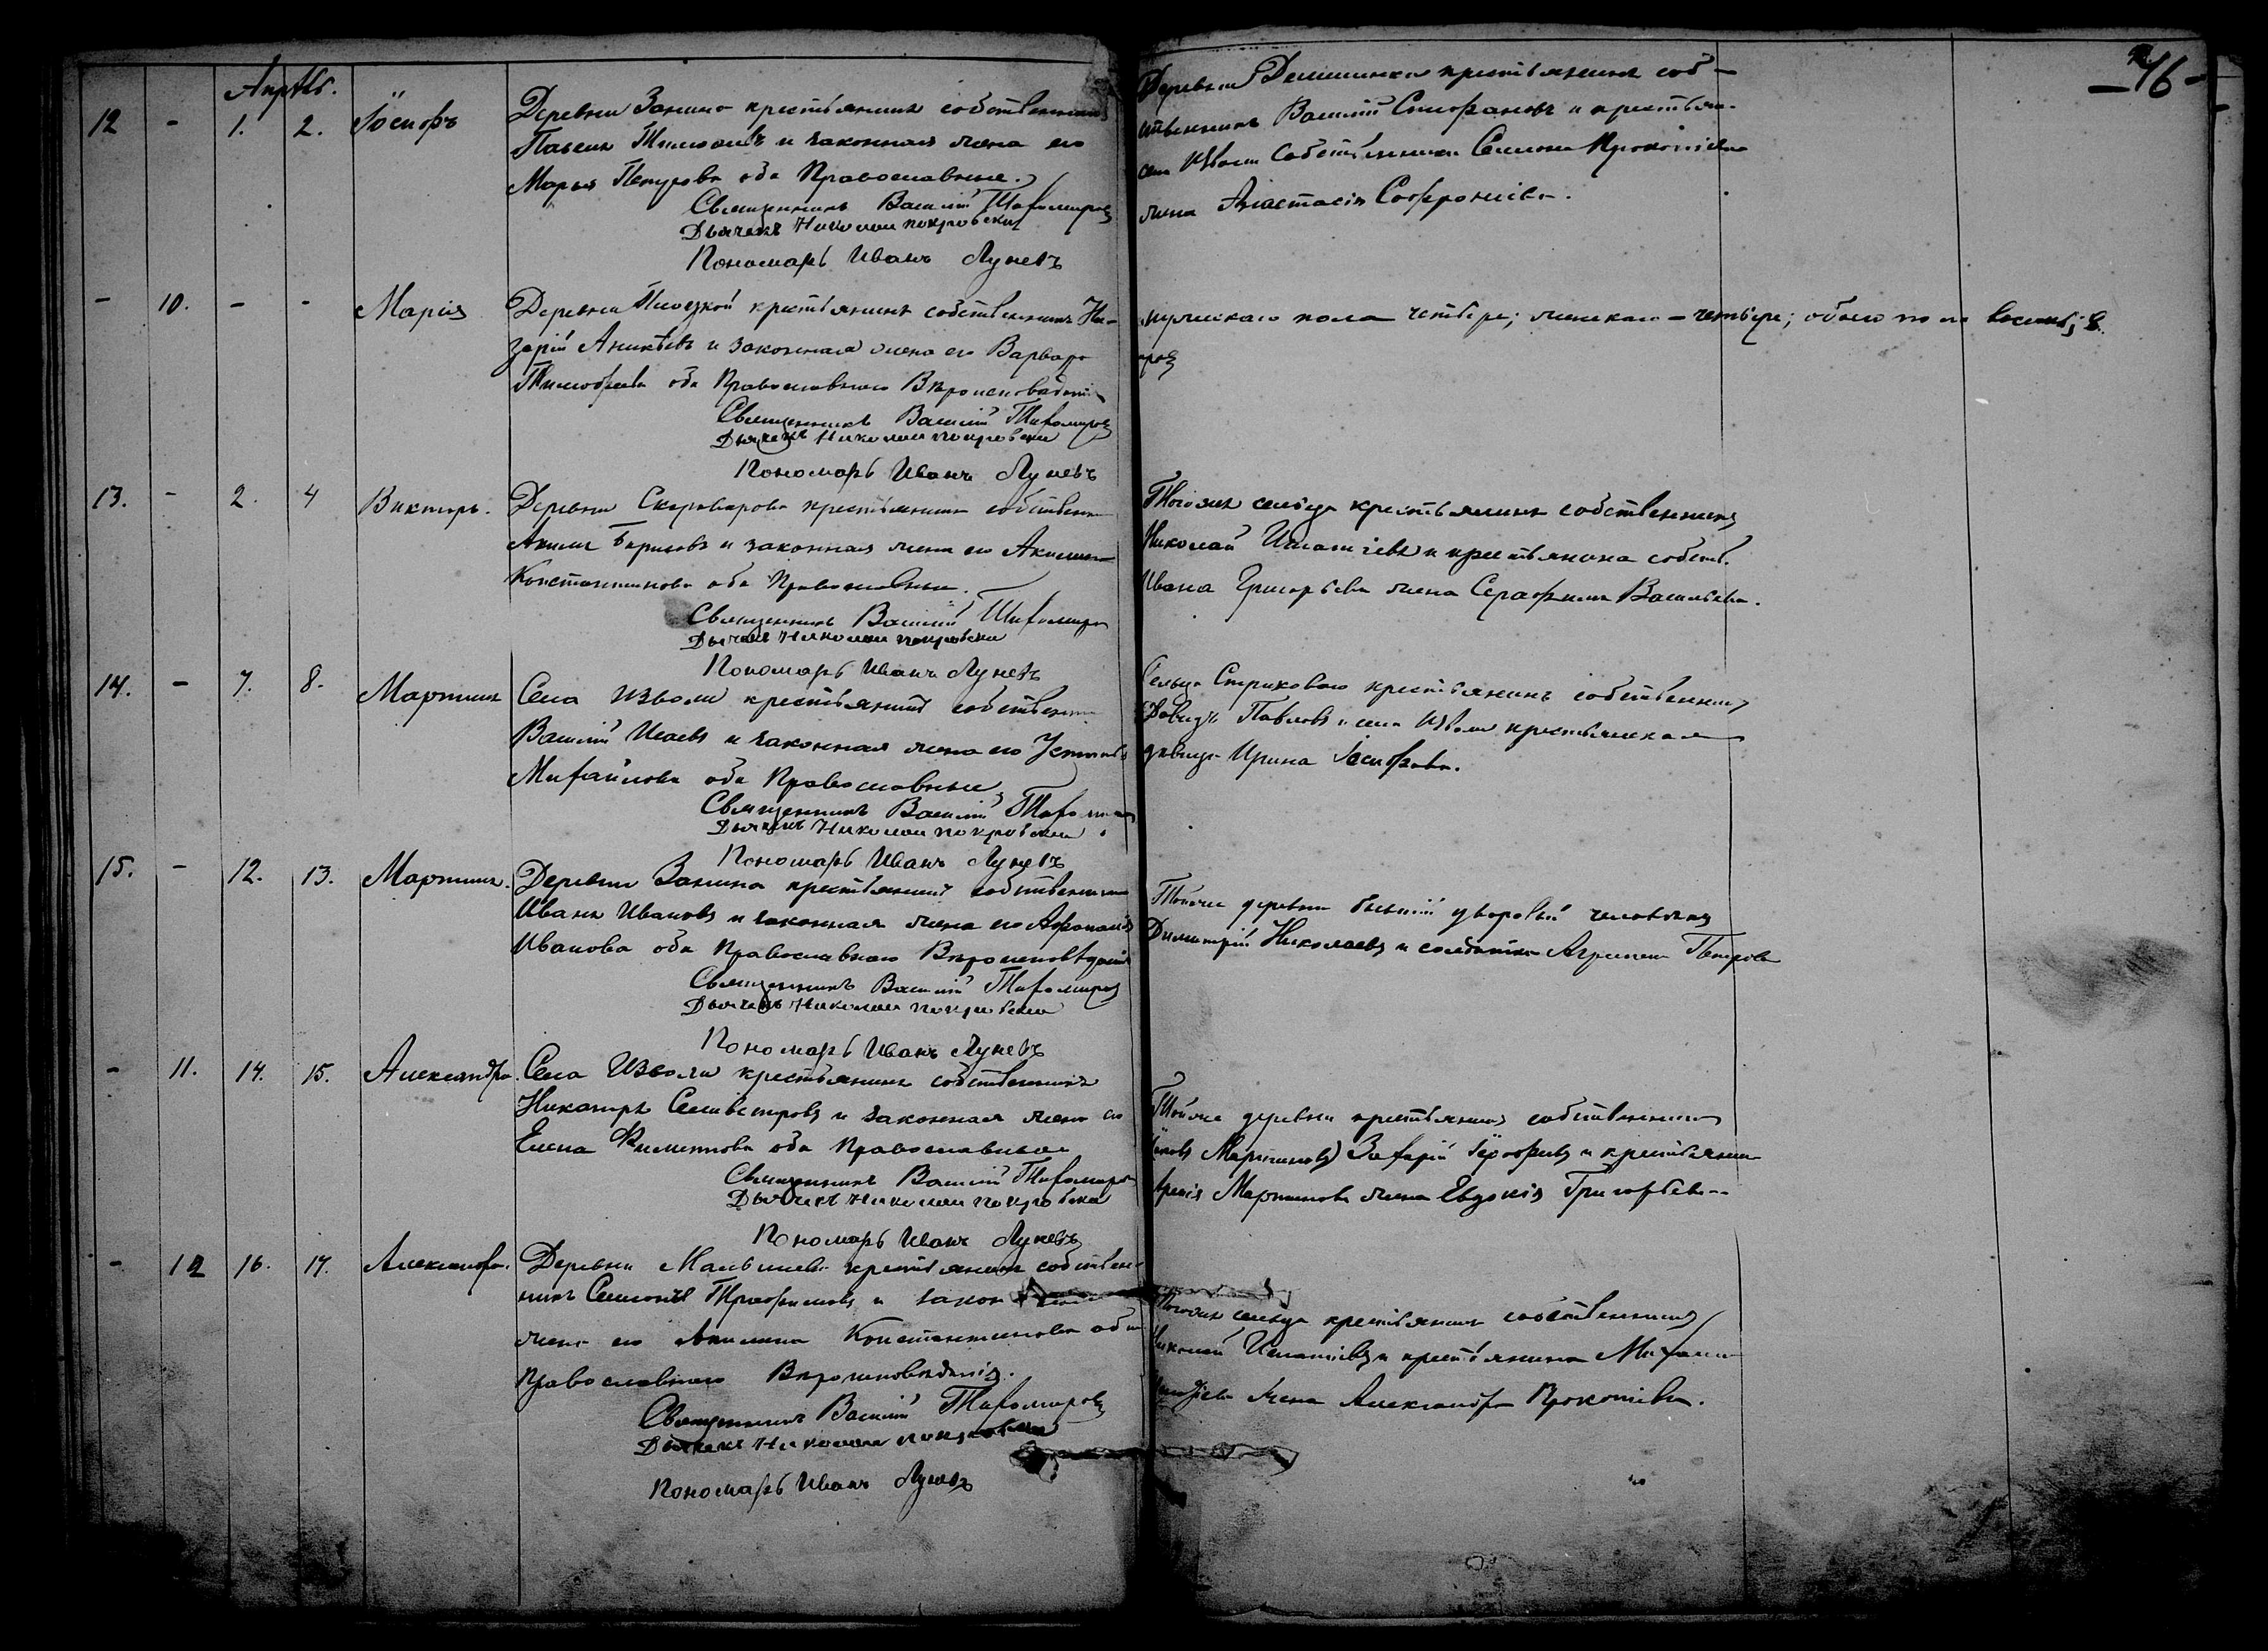 Апрѣль.
12 - 1. 2. Іосифъ
Деревни Занино крестьянинъ собственникъ
Павелъ и законная жена его
Марья Петрова оба Православные.
Священникъ Василій Тихомировъ
Дьячекъ Николай Покровский
Пономарь Иванъ Луневъ
Деревни крестьянинъ соб-
ственникъ Василій Стефановъ и крестьян.
села Изволи собственника Семена Прокопіева
жена Анастасія Софроніева.
-76-
- 10. - - Марія
Деревни крестьянинъ собственникъ На-
зарій Аникѣевъ и законная жена его Варвара
Тимофеева оба Православнаго Вѣроисповѣданія
Священникъ Василій Тихомировъ
Дьячекъ Николай Покровский
Пономарь Иванъ Луневъ
мужскаго пола четыре; женскаго - четыре; обоего пола восемь; 8.
13. - 2. 4 Викторъ.
Деревни крестьянинъ собственни
Акимъ Борисовъ и законная жена его Акилина
Константинова оба Православные.
Священникъ Василій Тихомиров
Дьячекъ Николай Покровски
Пономарь Иванъ Луневъ
Тогоже сельца крестьянинъ собственникъ
Николай Игнатіевъ и крестьянина собств.
Ивана Григорьева жена Серафима Васильева.
14. - 7. 8. Мартинъ
Села Изволи крестьянинъ собственни
Василій Исаевъ и законная жена его
Михайлова оба Православные
Священникъ Василій
Дьячекъ Николай Покровски
Пономарь Иванъ Луневъ
Сельца Стрихова крестьянинъ собственникъ
Давидъ Павловъ и села Изволи крестьянская
дѣвица Ирина Іосифова.
15. - 12. 13. Мартинъ.
Деревни Занина крестьянинъ собственни
Иванъ Ивановъ и законная жена его Афанасія
Иванова оба Православнаго Вѣроисповѣданія
Священникъ Василій Тихомировъ
Дьячекъ Николай Покровски
Пономарь Иванъ Луневъ
Тойже деревни бывшій дворовый человѣкъ
Димитрій Николаевъ и солдатка Агрипена Петрова
- 11. 14. 15. Александра.
Села Изволи крестьянинъ собственникъ
Никаноръ Селивестровъ и законная жена его
Елена Филиппова оба Православные
Священникъ Василій Тихомиров
Дьячекъ Николай Покровски
Пономарь Иванъ Луневъ
Тойже деревни крестьянинъ собственникъ
Мартиновъ) Захарій и крестьянина
Мартинова жена Евдокія Григорьева
- 12 16. 17. Александра.
Деревни крестьянинъ собствен-
никъ Семенъ Трофимовъ и закон
жена его Акилина Константинова оба
Православнаго Вѣроисповѣданія.
Священникъ Василій Тихомировъ
Дьячекъ Николай Покровский
Пономарь Иванъ Луневъ
Тогоже сельца крестьянинъ собственникъ
Николай Игнатіевъ и крестьянина Михаила
жена Александра Прокопіева.